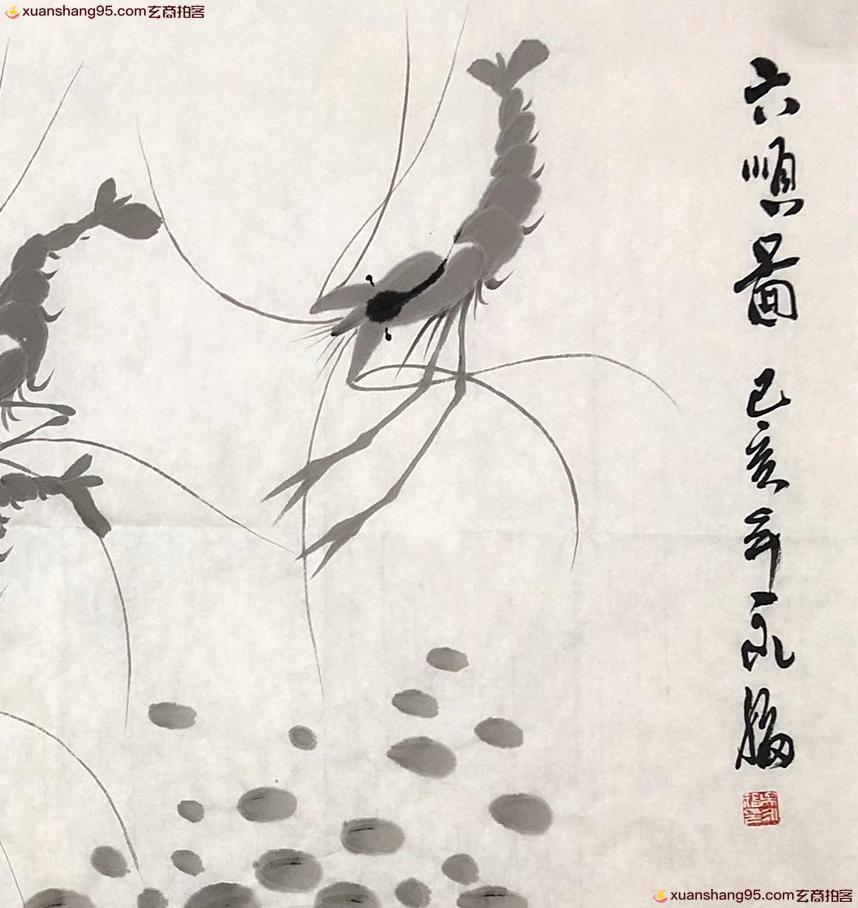 xuanshang95.com玄商拍客
六順圖 己亥年永
xuanshang95.com玄商拍客